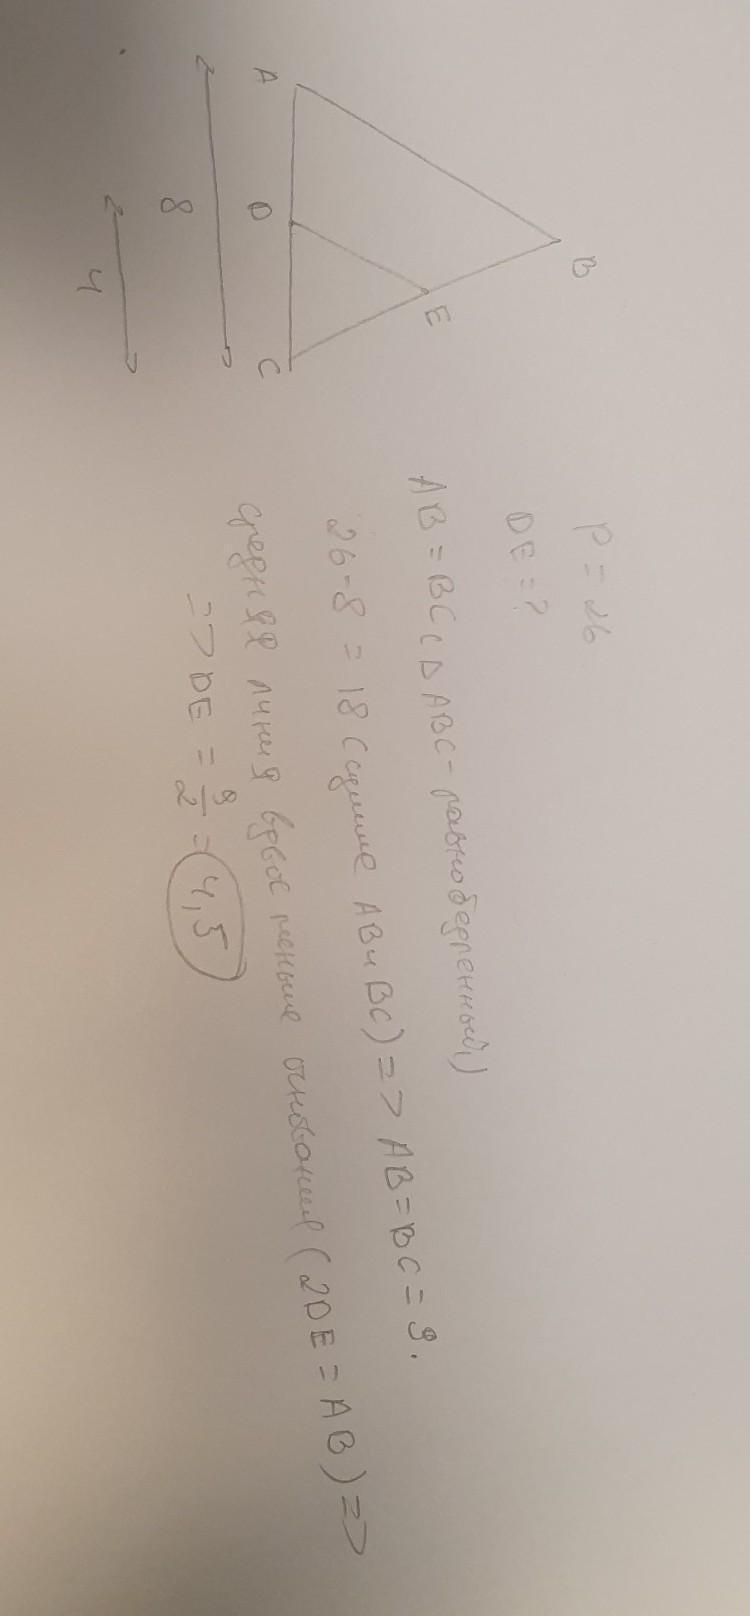 B
A
D
E
C
8
4
P = 26
DE = ?
AB = BC (△ABC - равнобедренный)
26-8 = 18 (сумме AB и BC) => AB = BC = 9.
средняя линия вдвое меньше основания (2DE = AB) =>
=> DE = 9/2 = 4,5